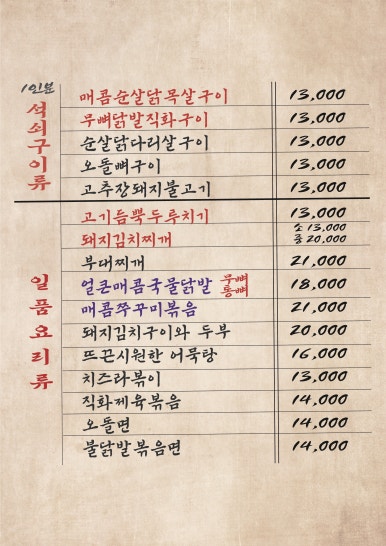 1인분
석쇠구이류
매콤순살닭목살구이 13,000
무뼈닭발직화구이 13,000
순살닭다리살구이 13,000
오돌뼈구이 13,000
고추장돼지불고기 13,000
일품요리류
고기듬뿍두루치기 13,000
돼지김치찌개 소 13,000
중 20,000
부대찌개 21,000
얼큰매콤국물닭발 무뼈 통뼈 18,000
매콤쭈꾸미볶음 21,000
돼지김치구이와 두부 20,000
뜨끈시원한 어묵탕 16,000
치즈라볶이 13,000
직화제육볶음 14,000
오돌면 14,000
불닭발볶음면 14,000